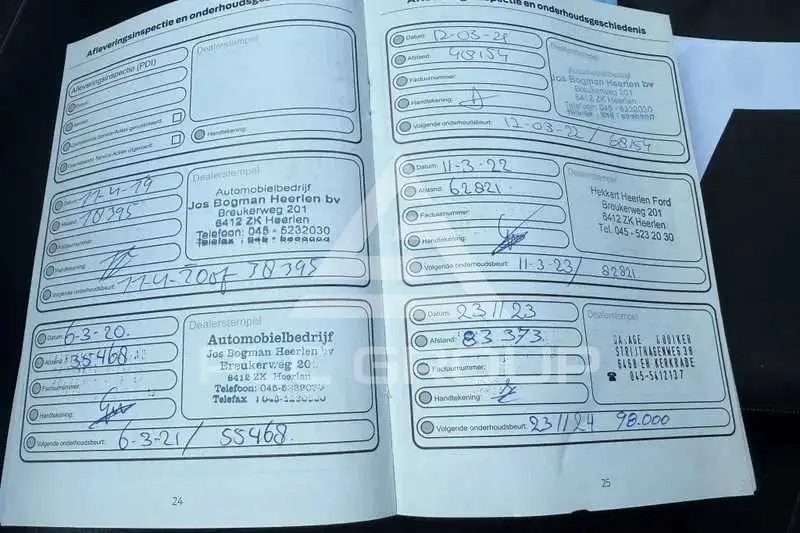 Afleveringsinspectie en onderhoudsges
Afleveringsinspectie (PDI)
Datum:
Dealerstempel
Handtekening:
Datum: 11-4-19
18395
Factuurnummer:
Handtekening:
Volgende onderhoudsbeurt: 11-4-20 of 38395
Dealerstempel
Automobielbedrijf
Jos Bogman Heerlen bv
Breukerweg 201
6412 ZK Heerlen
Telefoon: 045 - 5232030
Datum: 6-3-20.
Afstand: 35468
Factuurnummer:
Handtekening:
Volgende onderhoudsbeurt: 6-3-21/ 55468.
Dealerstempel
Automobielbedrijf
Jos Bogman Heerlen bv
Breukerweg 201
6412 ZK Heerlen
Telefoon: 045-5232030
Telefax : 045-5230500
24
Afleveringsinspectie en onderhoudsgeschiedenis
Datum: 12-03-21
Afstand: 48154
Factuurnummer:
Handtekening:
Volgende onderhoudsbeurt: 12-03-22/ 68154
Dealerstempel
Automobielbedrijf
Jos Bogman Heerlen bv
Breukerweg 201
6412 ZK Heerlen
Telefoon: 045 - 5232030
Datum: 11-3-22
Afstand: 62821.
Factuurnummer:
Handtekening:
Volgende onderhoudsbeurt: 11-3-23/ 82821
Dealerstempel
Hekkert Heerlen Ford
Breukerweg 201
6412 ZK Heerlen
Tel. 045 - 523 20 30
Datum: 23/1/23
Afstand: 83373
Factuurnummer:
Handtekening:
Volgende onderhoudsbeurt: 23/1/24 98.000
Dealerstempel
GARAGE KOOIKER
STRIJTHAGENWEG 38
KERKRADE
☎ 045-5412137
25
A GROUP